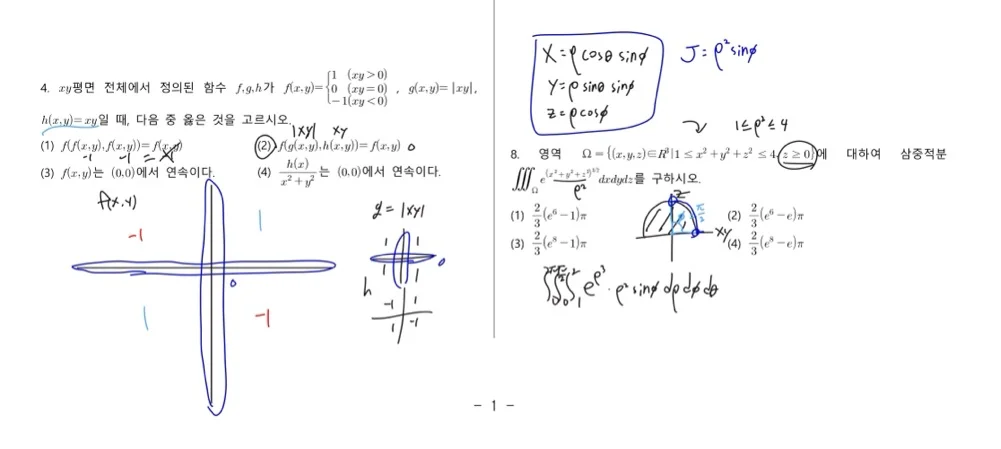 4. xy평면 전체에서 정의된 함수 f,g,h가 f(x,y)={1 (xy>0) 0 (xy=0) -1(xy<0) , g(x,y)=|xy|,
h(x,y)=xy일 때, 다음 중 옳은 것을 고르시오.
|xy| xy
(1) f(f(x,y),f(x,y))=f(x,y) (2) f(g(x,y),h(x,y))=f(x,y) 0
-1 -1 = -1
(3) f(x,y)는 (0,0)에서 연속이다. (4) h(x)/(x²+y²) 는 (0,0)에서 연속이다.
f(x,y)
-1 1
0
1 -1
g = |xy|
1 1
0
1 1
h
-1 1
1 -1
X = ρ cosθ sinφ
Y = ρ sinθ sinφ
Z = ρ cosφ
J = ρ² sinφ
1 ≤ ρ² ≤ 4
8. 영역 Ω={(x,y,z)∈R³|1≤x²+y²+z²≤4, z≥0}에 대하여 삼중적분
∭_Ω e^{(x²+y²+z²)^{3/2}} dxdydz를 구하시오.
ρ²
Z
π/2
XY
(1) 2/3(e⁶-1)π (2) 2/3(e⁶-e)π
(3) 2/3(e⁸-1)π (4) 2/3(e⁸-e)π
∫₀^{2π}∫₀^{π/2}∫₁² e^{ρ³} · ρ² sinφ dρ dφ dθ
- 1 -